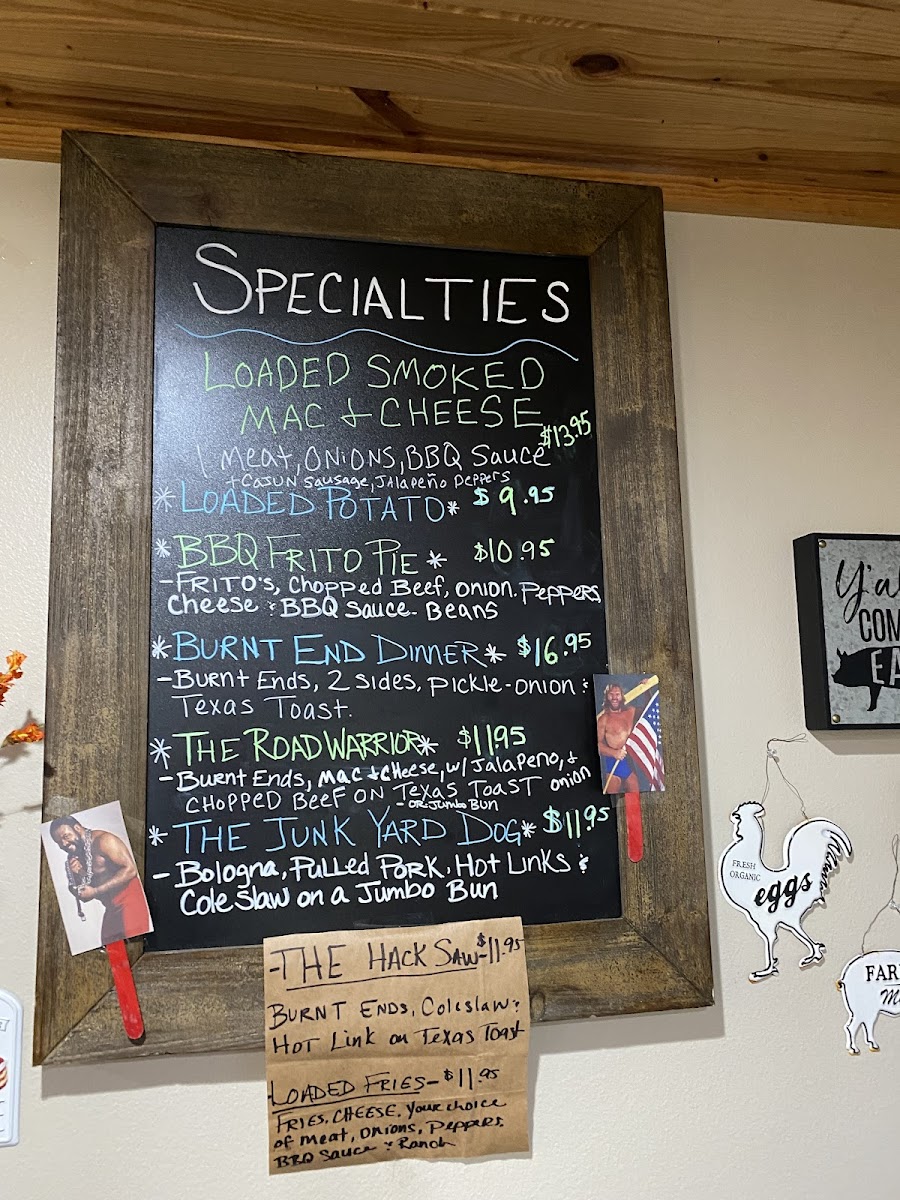 SPECIALTIES
LOADED SMOKED
MAC & CHEESE
$13.95
1 meat, ONIONS, BBQ Sauce
+ CAJUN Sausage, JALAPEÑO PEPPERS
*LOADED POTATO* $9.95
*BBQ FRITO PIE* $10.95
-FRITO'S, Chopped Beef, onion. Peppers,
Cheese & BBQ Sauce - Beans
*BURNT END DINNER* $16.95
-Burnt Ends, 2 sides, pickle-onion &
Texas Toast.
*THE ROAD WARRIOR* $11.95
-Burnt Ends, mac & cheese, w/ Jalapeno, &
CHOPPED BEEF ON Texas TOAST onion
- OR Jumbo Bun
*THE JUNK YARD DOG* $11.95
- Bologna, Pulled Pork, Hot Links &
Cole Slaw on a Jumbo Bun
-THE HACK SAW- $11.95
BURNT ENDS, Coleslaw &
HOT Link on Texas Toast
-LOADED FRIES- $11.95
FRIES, CHEESE, Your choice
of meat, Onions, Peppers,
BBQ Sauce & Ranch
Y'al
COM
EA
FRESH
ORGANIC
eggs
FAR